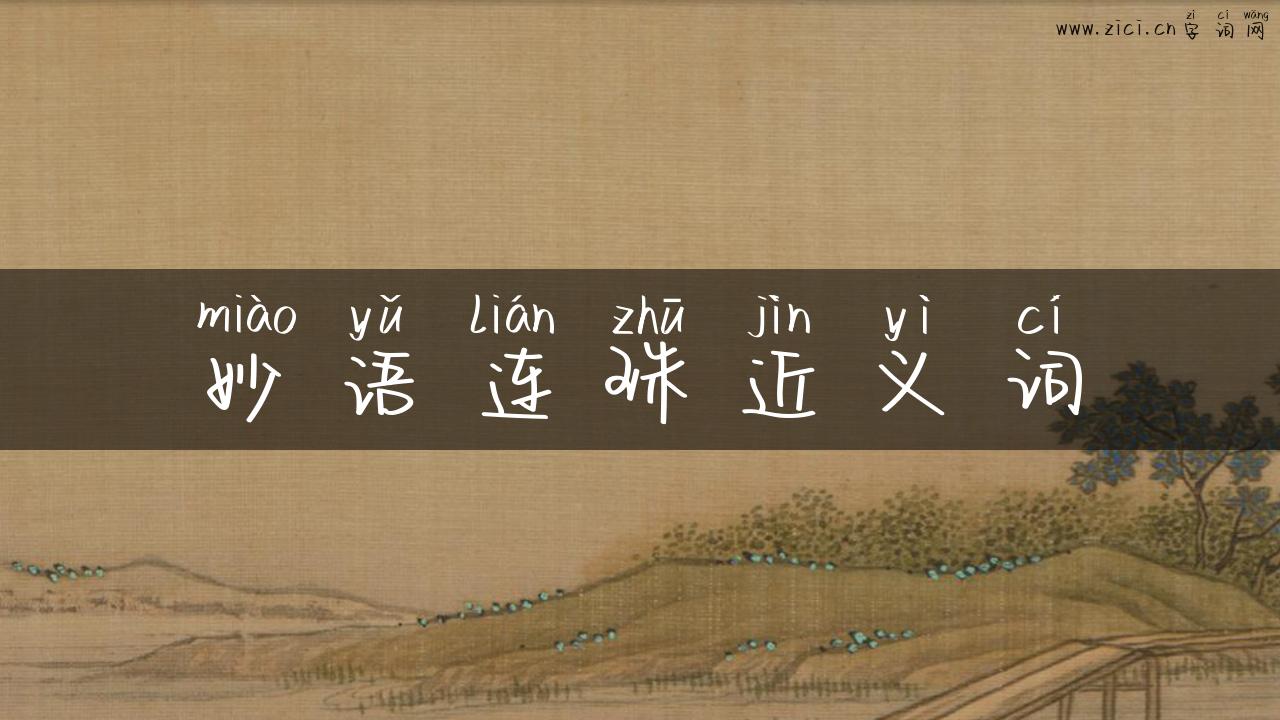 zì cí wǎng
www.zici.cn 字 词 网
miào yǔ lián zhū jìn yì cí
妙 语 连 珠 近 义 词